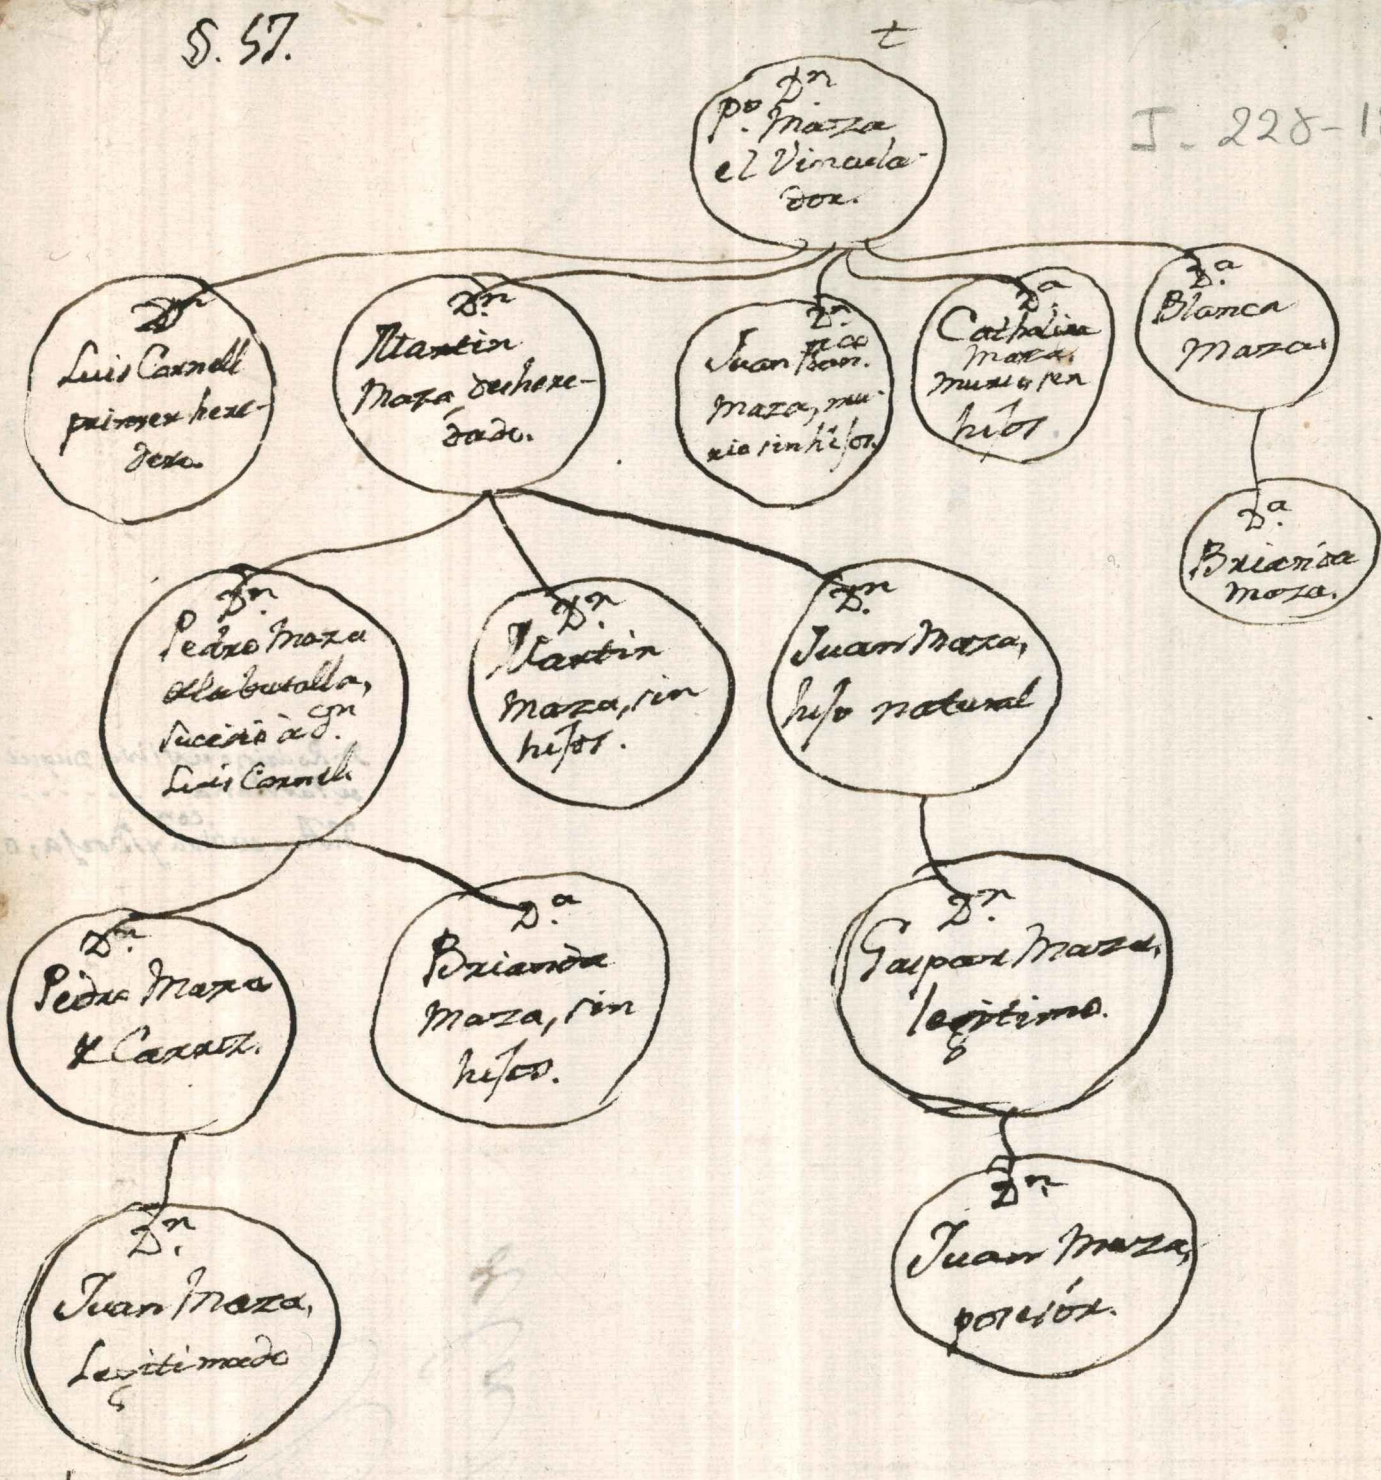 §. 57.
t
J. 228-1
Dn
Po. Maza
el Vincula-
dor.
Dn
Luis Cornell
primer here-
dero.
Dn.
Martin
Maza deshere-
dado.
Dn.
Juan Ran.co
Maza, mu-
rio sin hijos.
Da.
Cathalina
Maza.
murio sin
hijos
Da.
Blanca
Maza.
Da.
Brianda
Maza.
Dn.
Pedro Maza
dela batalla,
sucedió à dn.
Luis Cornell
Dn.
Martin
Maza, sin
hijos.
Dn.
Juan Maza,
hijo natural
Dn.
Pedro Maza
de Carroz.
Da.
Brianda
Maza, sin
hijos.
Dn.
Gaspar Maza,
legitimo.
Dn.
Juan Maza,
Legitimado
Dn.
Juan Maza,
posehór.